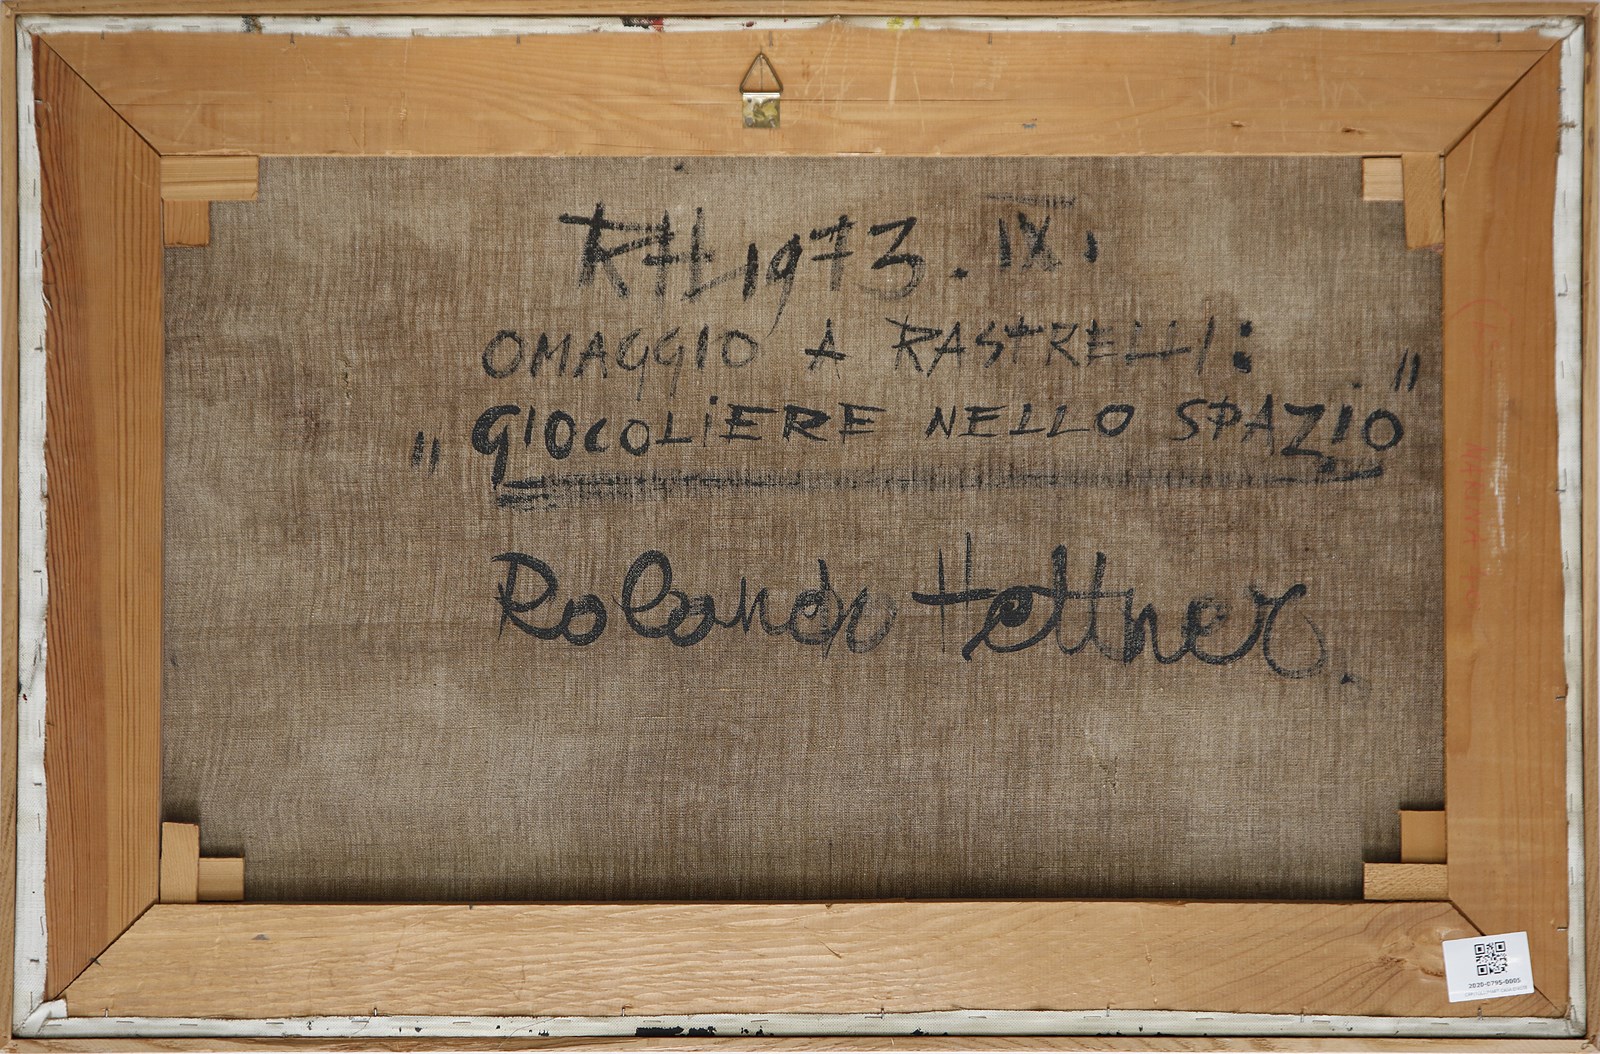 RHL 1973. IX.
OMAGGIO A RASTRELLI:
"GIOCOLIERE NELLO SPAZIO"
Rolando Hettner.
2020-0795-0005